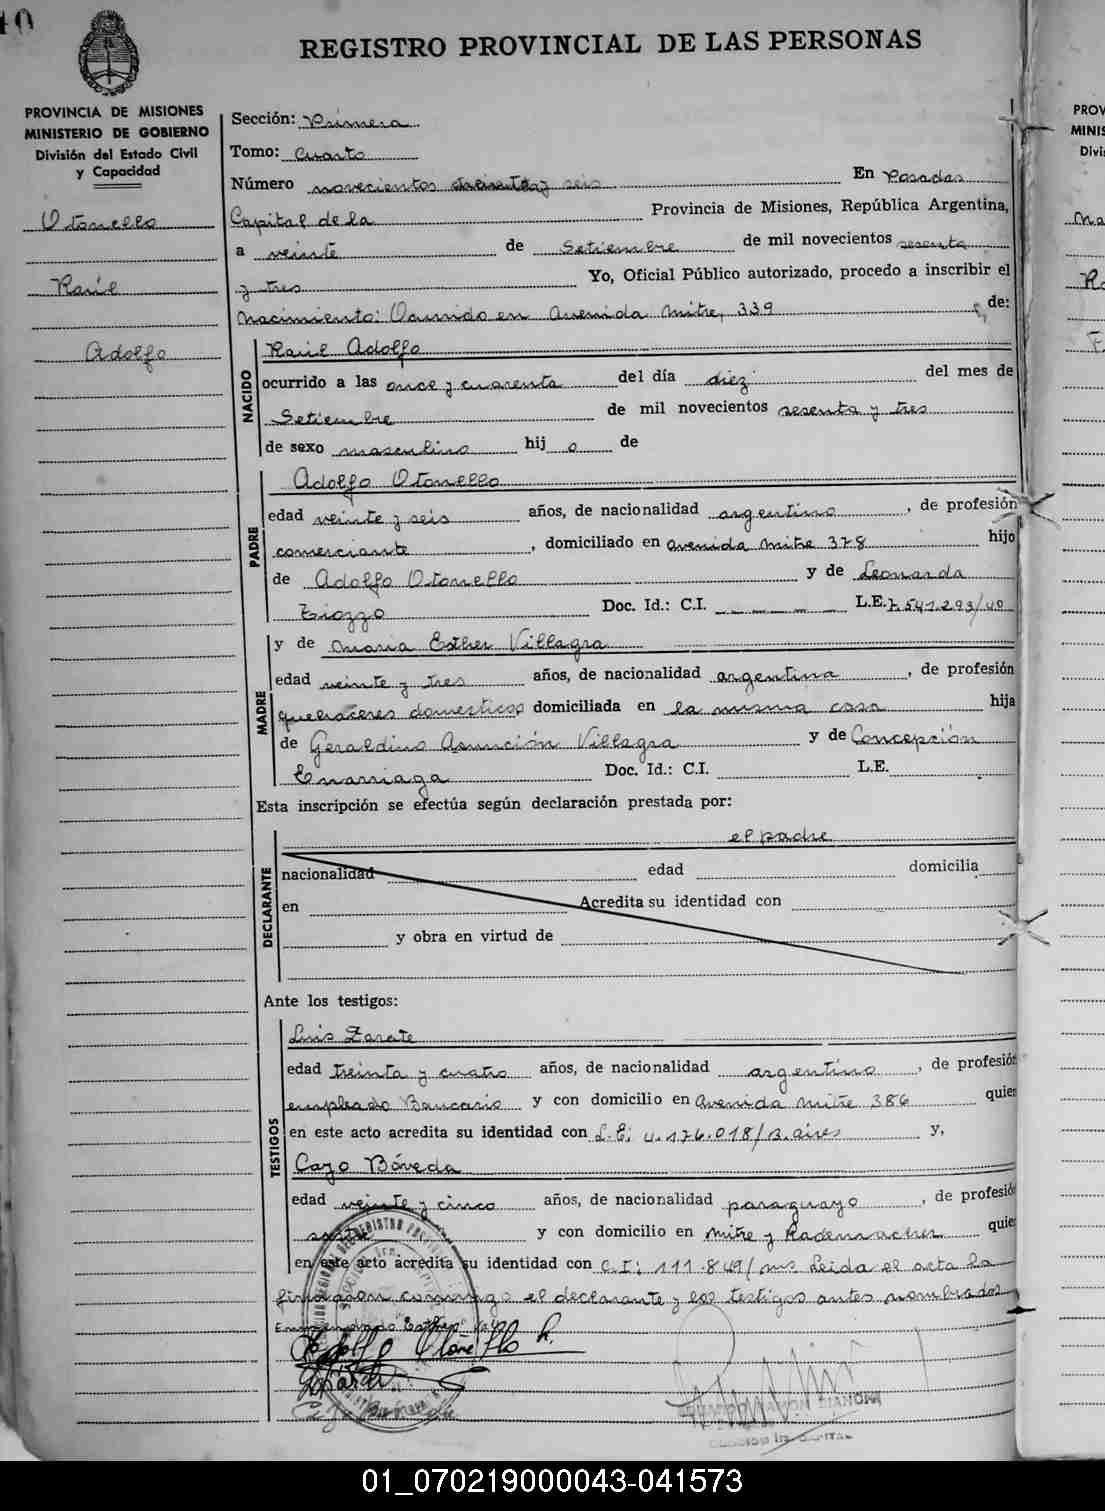 40
REGISTRO PROVINCIAL DE LAS PERSONAS
PROVINCIA DE MISIONES
MINISTERIO DE GOBIERNO
División del Estado Civil
y Capacidad
Otonello
Raúl
Adolfo
Sección: Primera
Tomo: Cuarto
Número novecientos treinta y seis En Posadas
Capital de la Provincia de Misiones, República Argentina,
a veinte de Setiembre de mil novecientos sesenta
y tres Yo, Oficial Público autorizado, procedo a inscribir el
nacimiento: Ocurrido en Avenida Mitre, 339 de:
NACIDO
Raúl Adolfo
ocurrido a las once y cuarenta del día diez del mes de
Setiembre de mil novecientos sesenta y tres
de sexo masculino hij o de
PADRE
Adolfo Otonello
edad veinte y seis años, de nacionalidad argentino, de profesión
comerciante, domiciliado en avenida mitre 378 hijo
de Adolfo Otonello y de Leonarda
Tiozzo Doc. Id.: C.I. — — — — — L.E. 7.541.293/40
MADRE
y de María Esther Villagra
edad veinte y tres años, de nacionalidad argentina, de profesión
quehaceres domesticos domiciliada en la misma casa hija
de Geraldino Asunción Villagra y de Concepción
Enarriaga Doc. Id.: C.I. L.E.
Esta inscripción se efectúa según declaración prestada por:
DECLARANTE
el padre
nacionalidad edad domicilia
en Acredita su identidad con
y obra en virtud de
Ante los testigos:
TESTIGOS
Luis Zarate
edad treinta y cuatro años, de nacionalidad argentino, de profesión
empleado Bancario y con domicilio en Avenida mitre 386 quien
en este acto acredita su identidad con L.E; 4.176.018/B.aires y,
Cayo Bóveda
edad veinte y cinco años, de nacionalidad paraguayo, de profesión
sastre y con domicilio en mitre y Rademacher quie
en este acto acredita su identidad con C.I; 111.849/ms Leida el acta la
firmaron conmigo el declarante y los testigos antes nombrados
Enmendado "Esther" Vale
PROV
MINIS
Divi
01_070219000043-041573